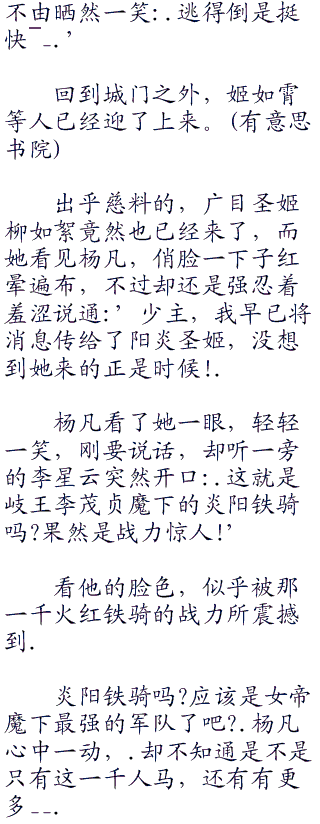 不由晒然一笑:.逃得倒是挺
快¯_.’
回到城门之外，姬如霄
等人已经迎了上来。(有意思
书院)
出乎慈料的，广目圣姬
柳如絮竟然也已经来了，而
她看见杨凡，俏脸一下子红
晕遍布，不过却还是强忍着
羞涩说通:’少主，我早已将
消息传给了阳炎圣姬，没想
到她来的正是时候!.
杨凡看了她一眼，轻轻
一笑，刚要说话，却听一旁
的李星云突然开口:.这就是
岐王李茂贞魔下的炎阳铁骑
吗?果然是战力惊人!’
看他的脸色，似乎被那
一千火红铁骑的战力所震撼
到.
炎阳铁骑吗?应该是女帝
魔下最强的军队了吧?.杨凡
心中一动，.却不知通是不是
只有这一千人马，还有有更
多--.